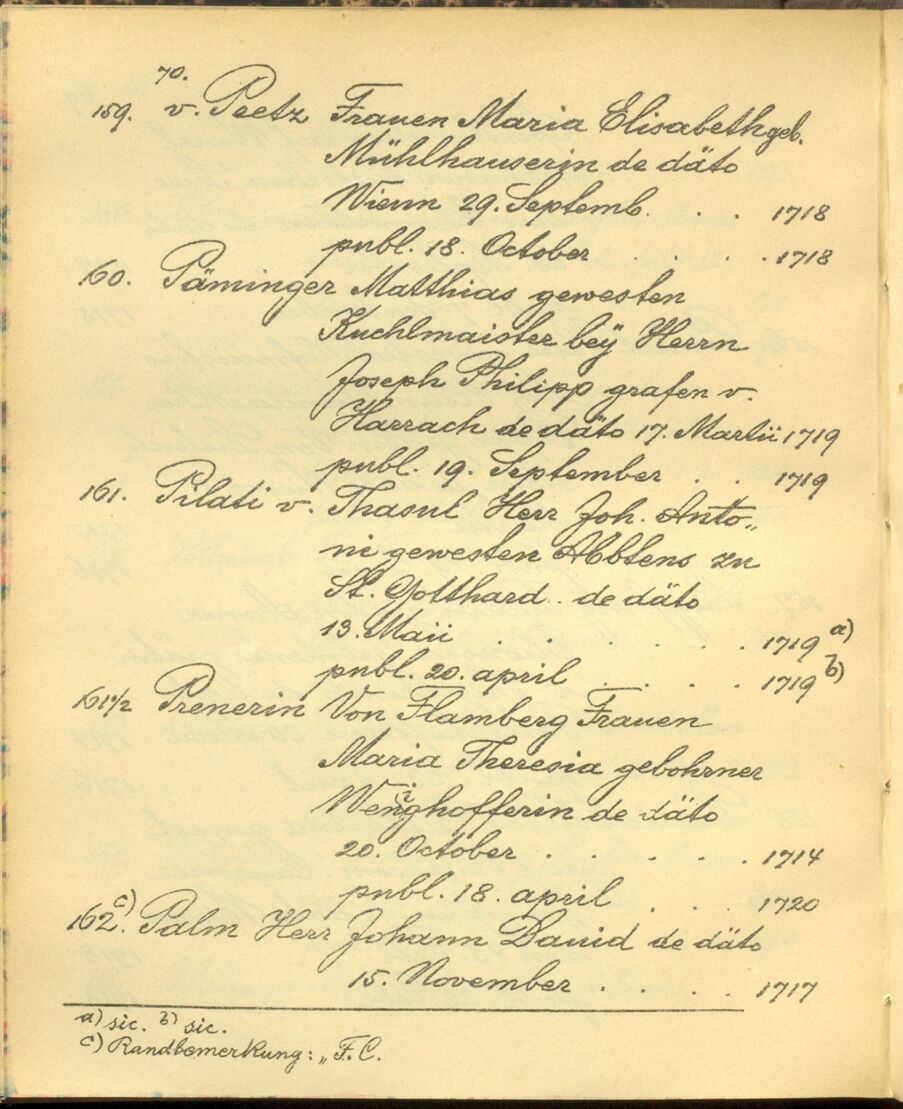 70.
159. v. Peetz Frauen Maria Elisabeth geb.
Mühlhauserin de däto
Wienn 29. Septemb. . . . 1718
publ. 18. October . . . . 1718
160. Päminger Matthias gewesten
Kuchlmaister beÿ Herrn
Joseph Philipp grafen v.
Harrach de däto 17. Martii 1719
publ. 19. September . . 1719
161. Pilati v. Thasul Herr Joh. Anto„
ni gewesten Abbtens zu
St. Gotthard . de däto
13. Maii . . . . . . 1719 a)
publ. 20. april . . . . 1719 b)
161 1/2 Prenerin Von Flamberg Frauen
Maria Theresia gebohrner
Wenghofferin de däto
20. October . . . . . 1714
publ. 18. april . . . 1720
162. c) Palm Herr Johann David de däto
15. November . . . . 1717
a) sic. b) sic.
c) Randbemerkung: „F.C.